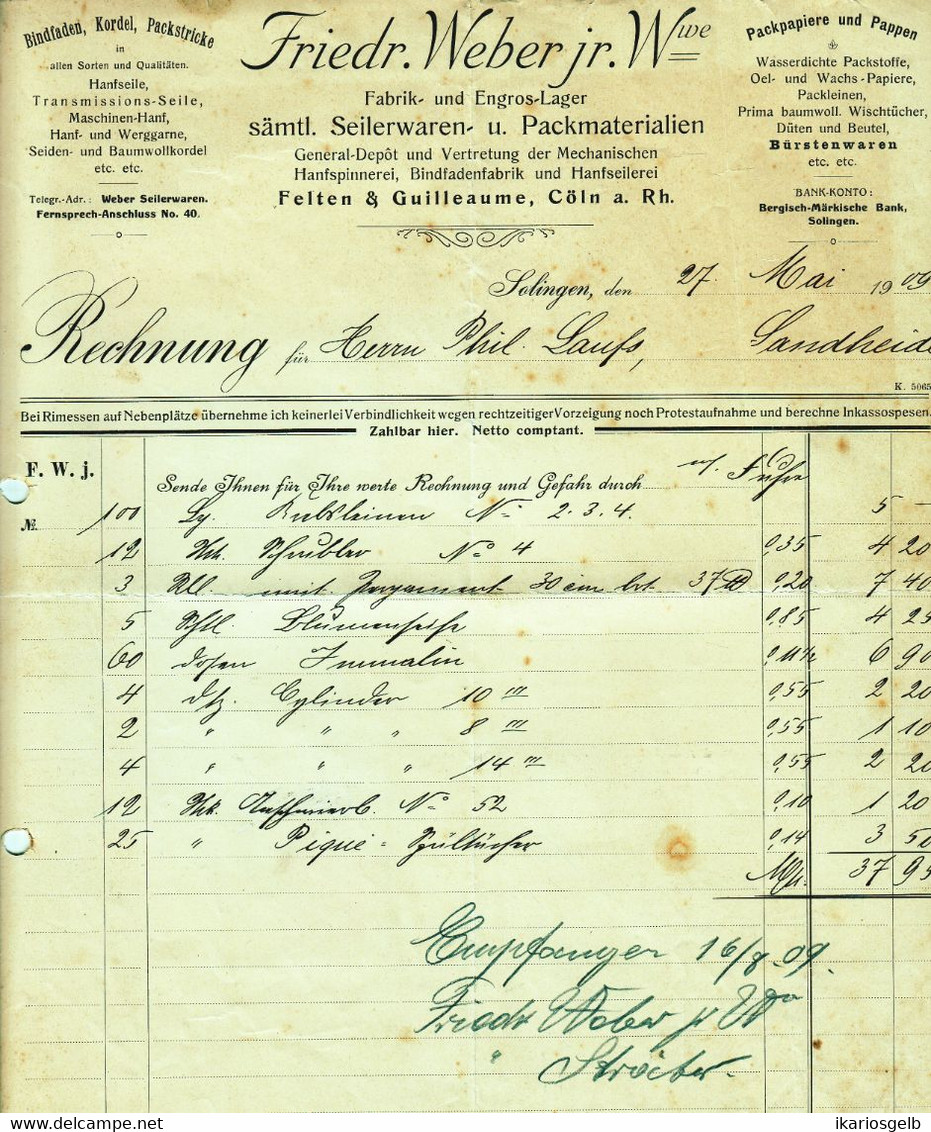 Bindfaden, Kordel, Packstricke
in
allen Sorten und Qualitäten.
Hanfseile,
Transmissions-Seile,
Maschinen-Hanf,
Hanf- und Werggarne,
Seiden- und Baumwollkordel
etc. etc.
Telegr.-Adr.: Weber Seilerwaren.
Fernsprech-Anschluss No. 40.
Friedr. Weber jr. Wwe
Fabrik- und Engros-Lager
sämtl. Seilerwaren- u. Packmaterialien
General-Depôt und Vertretung der Mechanischen
Hanfspinnerei, Bindfadenfabrik und Hanfseilerei
Felten & Guilleaume, Cöln a. Rh.
Packpapiere und Pappen
Wasserdichte Packstoffe,
Oel- und Wachs-Papiere,
Packleinen,
Prima baumwoll. Wischtücher,
Düten und Beutel,
Bürstenwaren
etc. etc.
BANK-KONTO:
Bergisch-Märkische Bank,
Solingen.
Solingen, den 27. Mai 1909
Rechnung für Herrn Phil. Laufs, Sandheide
K. 5065
Bei Rimessen auf Nebenplätze übernehme ich keinerlei Verbindlichkeit wegen rechtzeitiger Vorzeigung noch Protestaufnahme und berechne Inkassospesen.
Zahlbar hier. Netto comptant.
F. W. j.
Sende Ihnen für Ihre werte Rechnung und Gefahr durch Fuhre
№ 100 No 2. 3. 4. 5 —
12 Stk. Schrubber No 4 0,35 4 20
3 Rll. imit. Pergament 30 cm brt. 37 ℔ 0,20 7 40
5 Schtl Blumenseife 0,85 4 25
60 Dosen Immalin 0,11 1/2 6 90
4 dtz. Cylinder 10 ''' 0,55 2 20
2 " " " 8 ''' 0,55 1 10
4 " " " 14 ''' 0,55 2 20
12 Stk. Anschmierb. No 52 0,10 1 20
25 " Piqué = Spültücher 0,14 3 50
Mk. 37 95
Empfangen 16/8.09.
Friedr Weber jr Ww
" Ströter
ikariosgelb